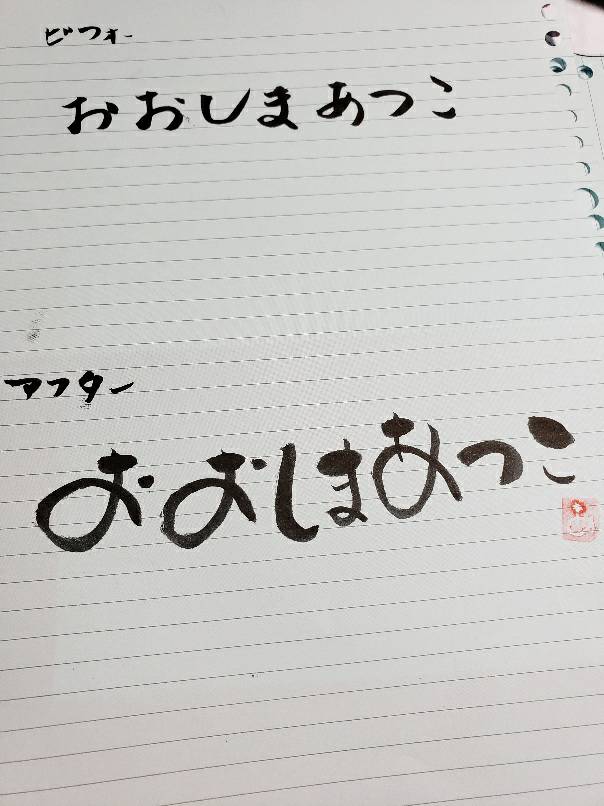 ビフォー
おおしまあつこ
アフター
おおしまあつこ